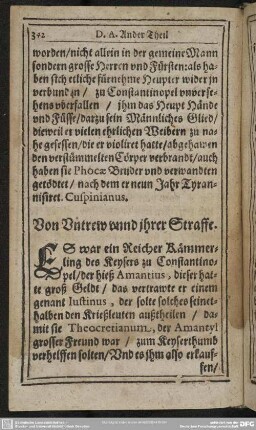 342 D. A. Ander Theil
worden/nicht allein in der gemeine Mann
sondern grosse Herren und Fürsten: als ha
ben sich etliche fürnehme Heupter wider jn
verbund zn/ zu Constantinopel unvorse-
hens uberfallen / jhm das Heupt Hände
und Füsse/darzu sein Männliches Glied/
dieweil er vielen ehrlichen Weibern zu na-
he gesessen/die er violiret hatte/abgehawen
den verstümmelten Cörper verbrandt/auch
haben sie Phocæ Bruder und verwandten
getödtet/ nach dem er neun Jahr Tyran-
nisiret. Cuspinianus.
Von Untrew unnd jhrer Straffe.
ES war ein Reicher Kämmer-
ling des Keysers zu Constantino-
pel/der hieß Amantius, dieser hat-
te groß Geldt/ das vertrawte er einem
genant Iustinus, der solte solches seinet-
halben den Krießleuten außtheilen/ da-
mit sie Theocretianum, der Amantyl
grosser Freund war / zum Keyserthumb
verhelffen solten/Und es jhm also erkauf-
fen/